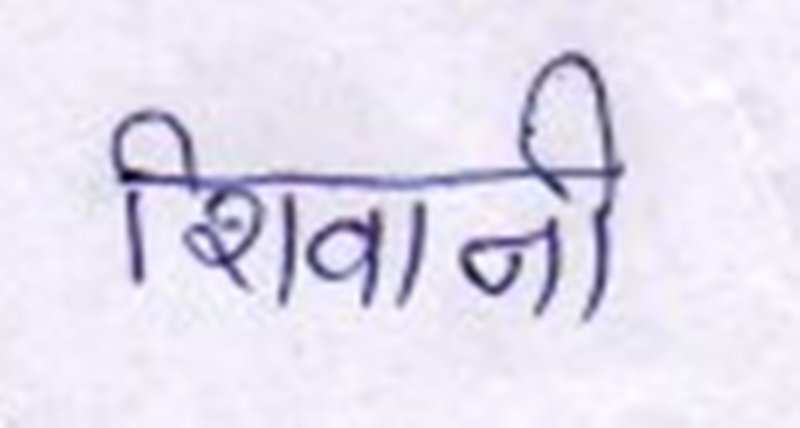 शिवानी